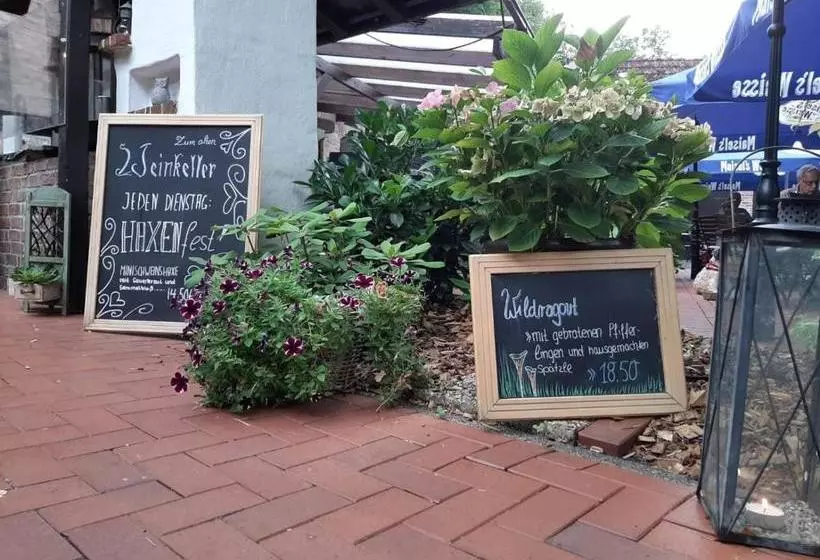 Zum alten
Weinkeller
JEDEN DIENSTAG:
HAXENfest
MINISCHWEINSHAXE
mit Sauerkraut und
Semmelknödel
14.50
Wildragout
» mit gebratenen Piffer-
lingen und hausgemachten
Spätzle » 18.50
Maisel's Weisse
Maisel's
Maisel's Weisse